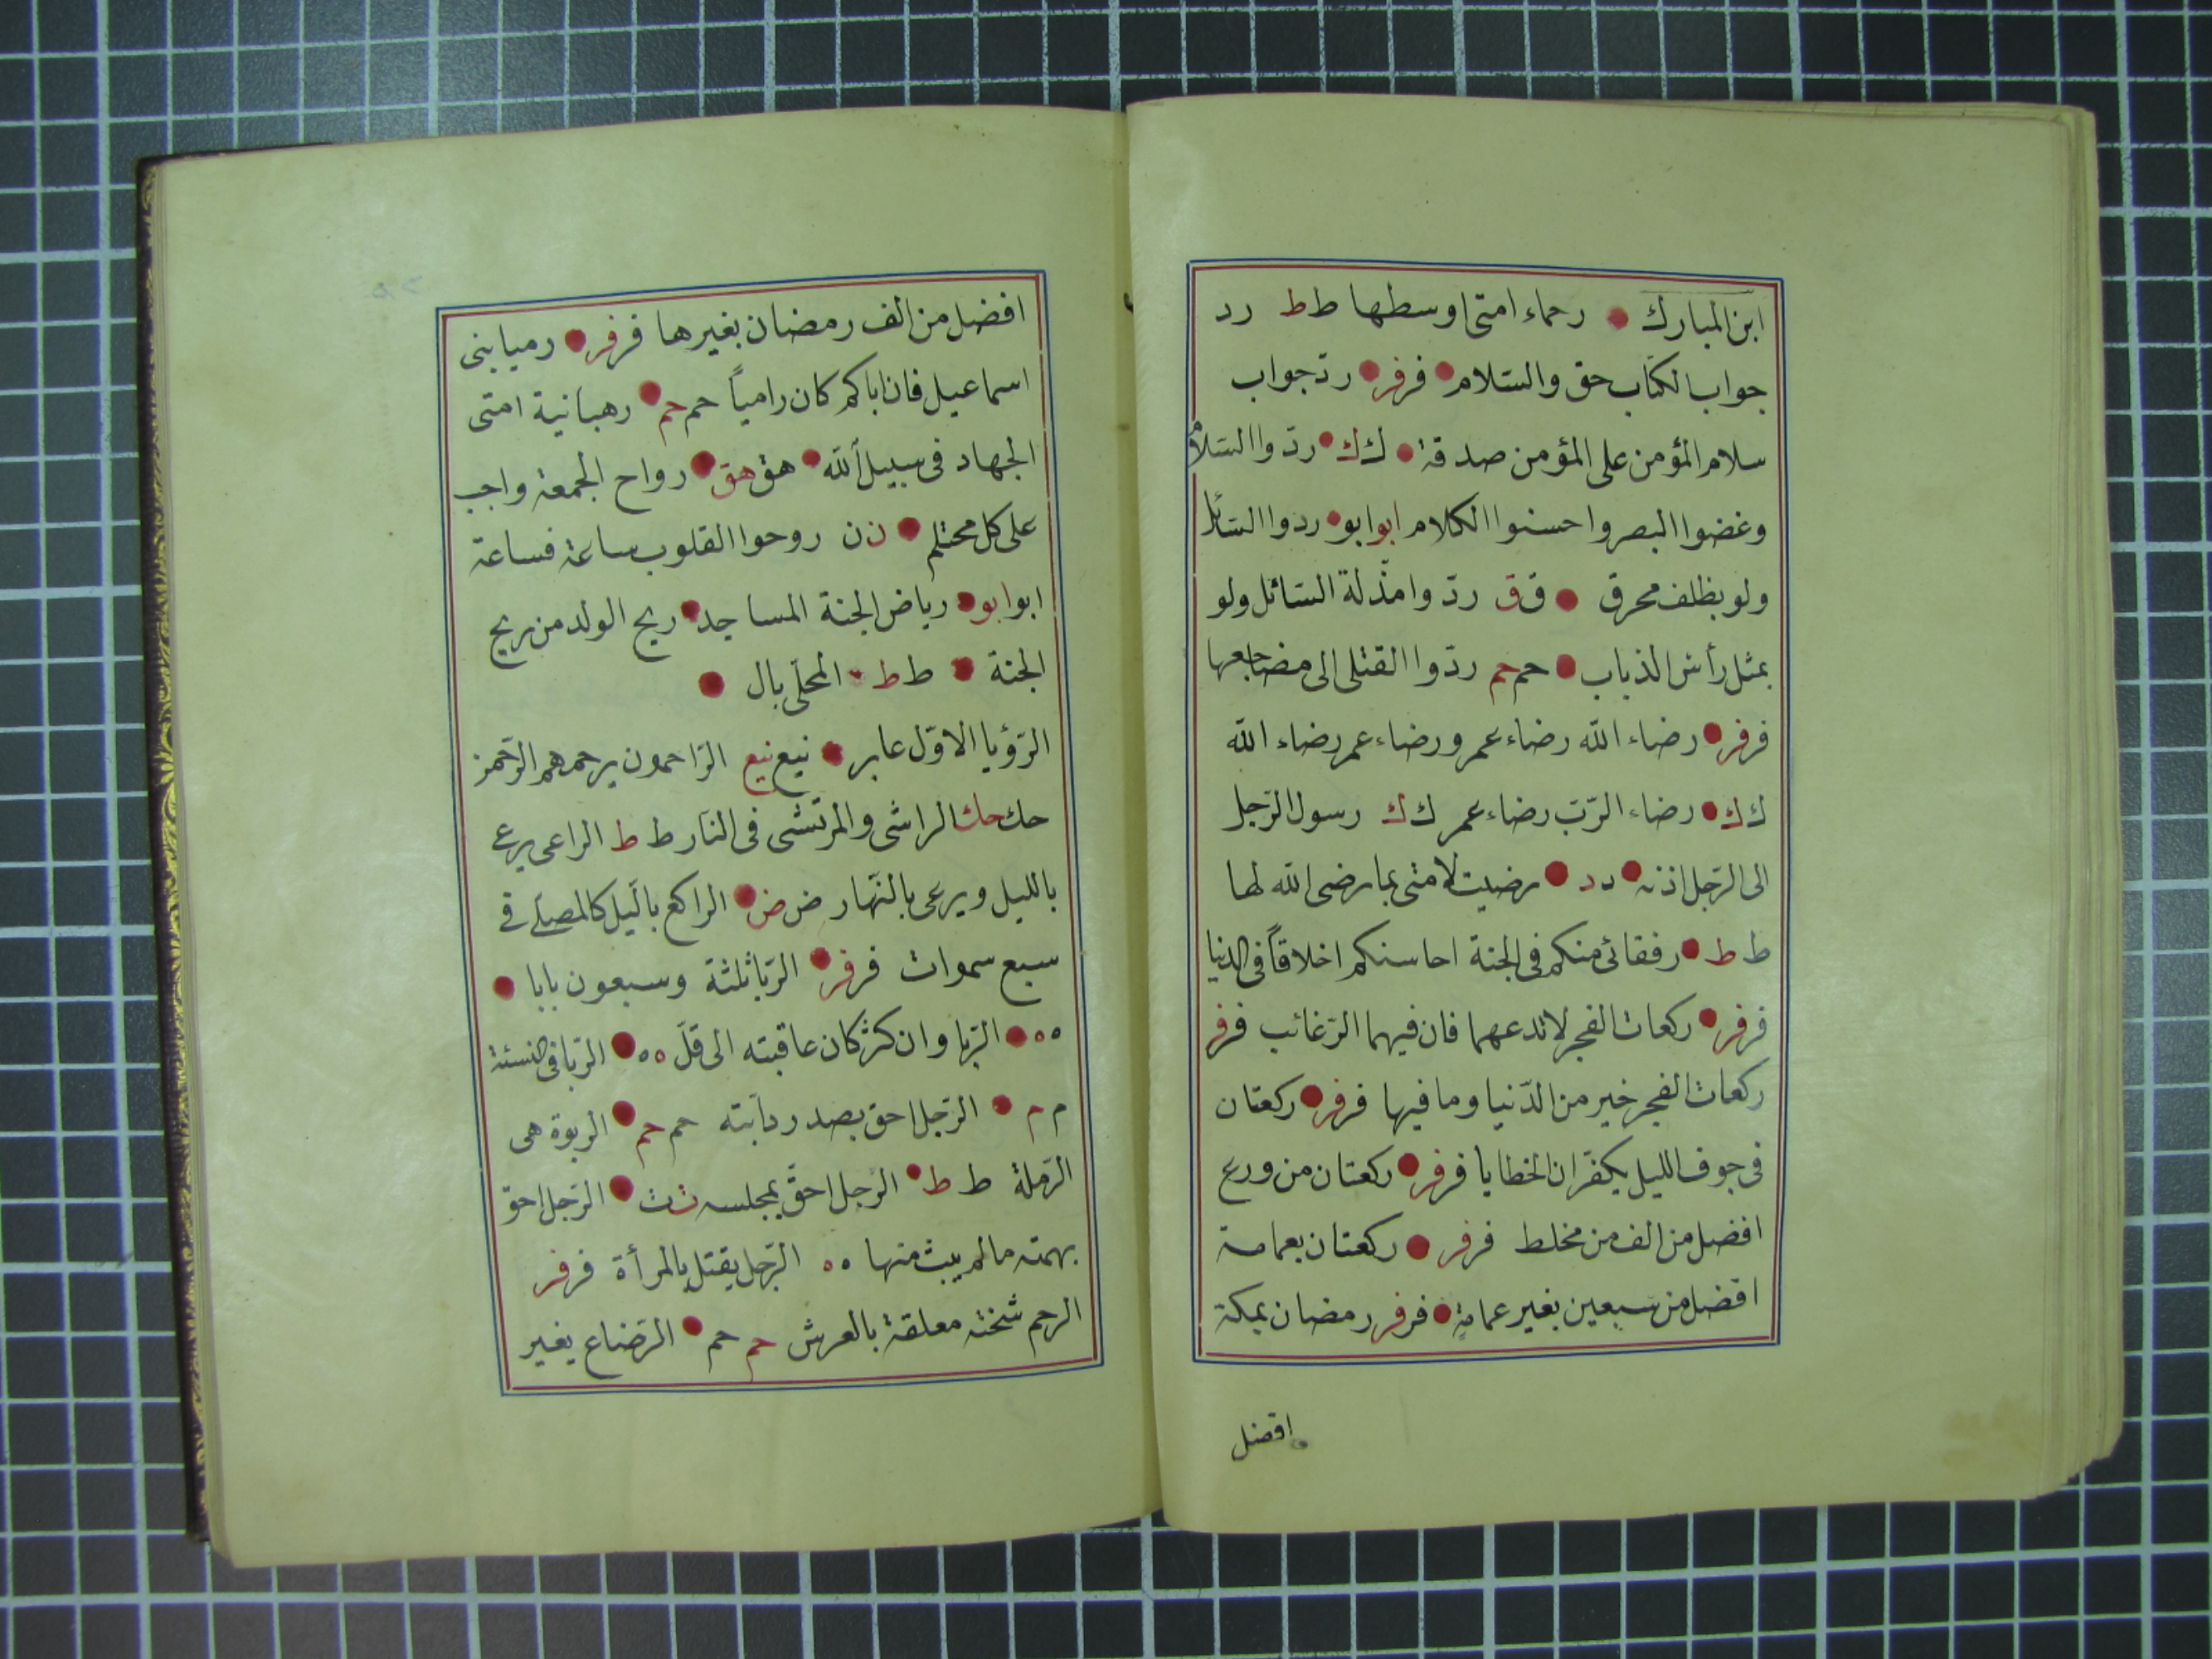 ابن المبارك رحماء امتى اوسطها ط ط رد
جواب الكتاب حق والسّلام فر فر ردّ جواب
سلام المؤمن على المؤمن صدقة ك ك ردّوا السّلام
وغضوا البصر واحسنوا الكلام ابو ابو ردوا السّائل
ولو بظلف محرق ق ق ردّوا مذّلة السّائل ولو
بمثل رأس الذباب حم حم ردّوا القتلى الى مضاجعها
فر فر رضاء الله رضاء عمر ورضاء عمر رضاء الله
ك ك رضاء الرّبّ رضاء عمر ك ك رسول الرّجل
الى الرّجل اذنه د د رضيت لامتى بما رضى الله لها
ط ط رفقائى منكم فى الجنة احاسنكم اخلاقاً فى الدنيا
فر فر ركعات الفجر لا تدعهما فان فيهما الرّغائب فر فر
ركعات الفجر خير من الدّنيا وما فيها فر فر ركعتان
فى جوف الليل يكفّران الخطايا فر فر ركعتان من ورع
افضل من الف من مخلط فر فر ركعتان بعمامة
افضل من سبعين بغير عمامة فر فر رمضان بمكة
افضل
افضل من الف رمضان بغيرها فر فر رميا بنى
اسماعيل فان اباكم كان رامياً حم حم رهبانية امتى
الجهاد فى سبيل الله هق هق رواح الجمعة واجب
على كل محتلم ن ن روحوا القلوب ساعة فساعة
ابو ابو رياض الجنة المساجد ريح الولد من ريح
الجنة ط ط المحلّى بال
الرّؤيا الاوّل عابر نيع نيع الرّاحمون يرحمهم الرّحمن
حك حك الراشى والمرتشى فى النار ط ط الراعى يرعى
بالليل ويرعى بالنّهار ض ض الراكع بالّيل كالمصلّى فى
سبع سموات فر فر الرّبا ثلثة وسبعون بابا
ه ه الرّبا وان كثر كان عاقبته الى قلّ ه ه الرّبا فى النسئة
م م الرّجل احق بصدر دابّته حم حم الربوة هى
الرّملة ط ط الرّجل احقّ بمجلسه ث ث الرّجل احق
بهمته مالم يبث منها ه ه الرّجل يقتل بالمرأة فر فر
الرحم شخنة معلقة بالعرش حم حم الرّضاع يغير